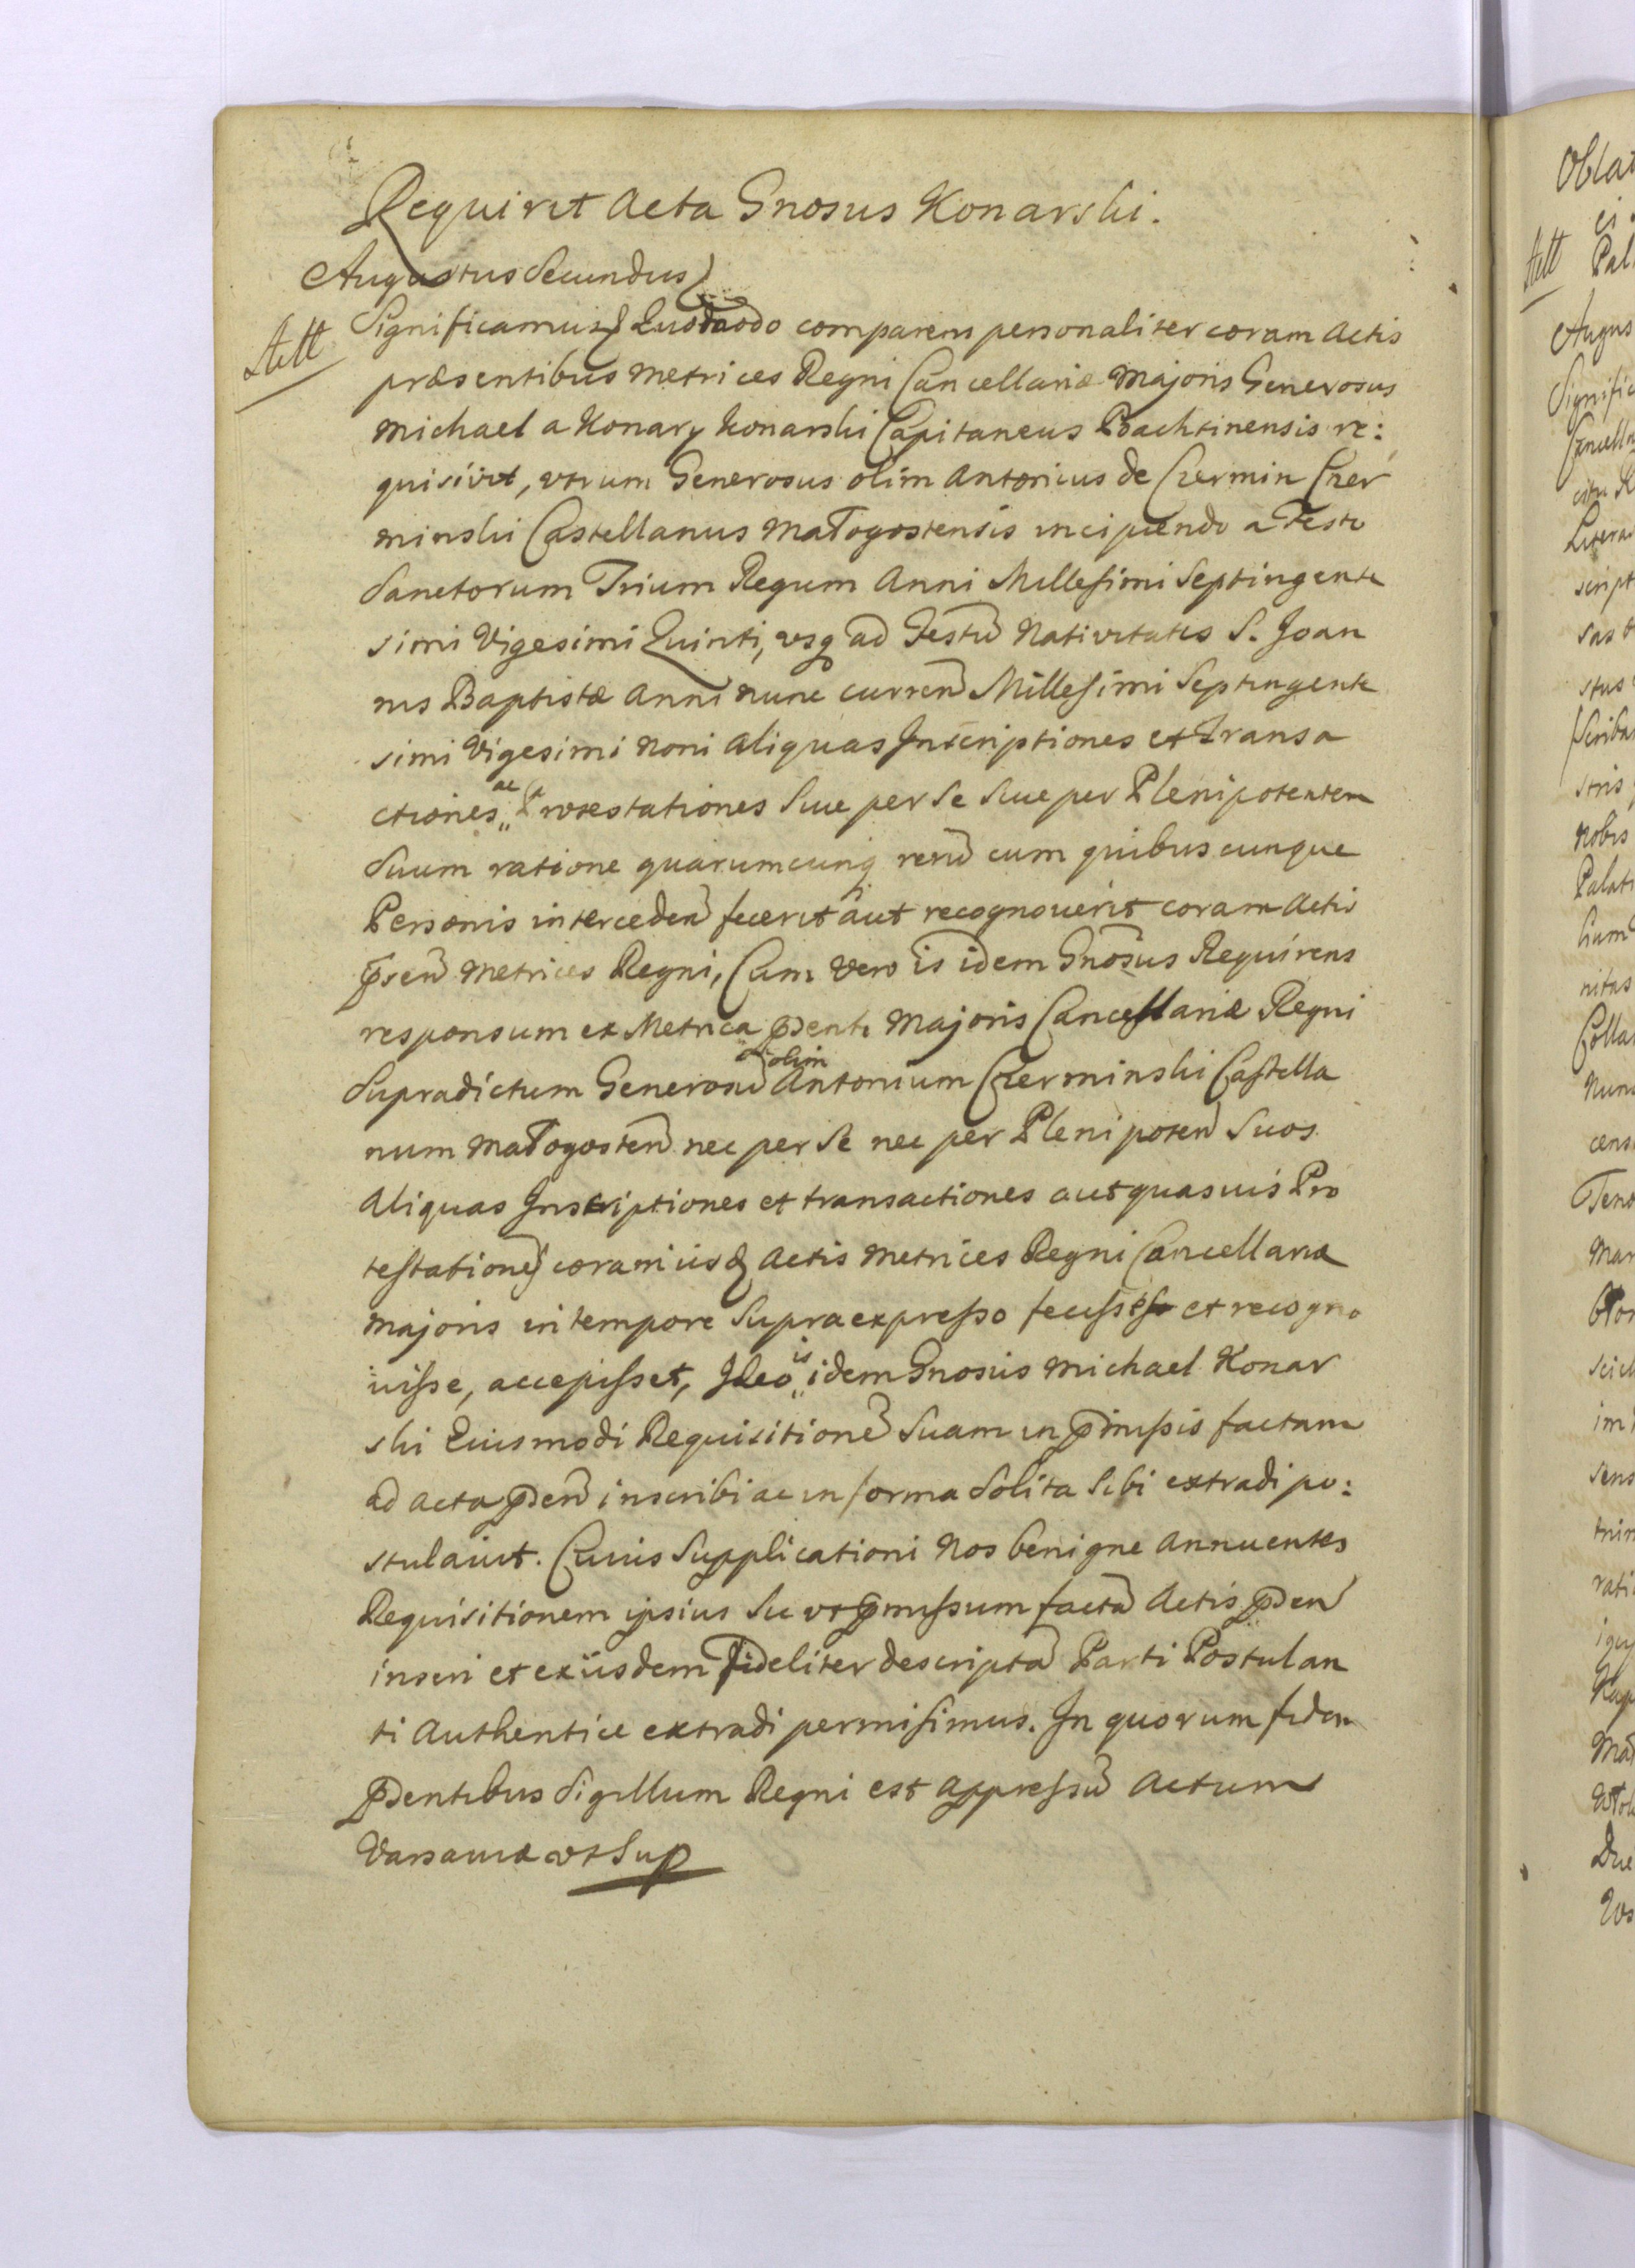 Requirit Acta Gnosus Konarski.
Augustus Secundus
Significamus Quod quomodo comparens personaliter coram Actis
præsentibus Metrices Regni Cancellariæ Majoris Generosus
Michael a Konary Konarski Capitaneus Bachtinensis re:
quisivit, utrum Generosus olim Antonius de Czermin Czer
minski Castellanus Małogostensis incipiendo a Festo
Sanctorum Trium Regum Anni Millesimi Septingente
simi Vigesimi Quinti, usq ad Festu Nativitatis S. Joan
nis Baptistæ Anni nunc curren Millesimi Septingente
simi Vigesimi Noni Aliquas Inscriptiones et Transa
ctiones ac Protestationes Sive per Se Sive per Plenipotentem
Suum ratione quarumcunq reru cum quibuscunque
Personis interceden fecerit aut recognoverit coram Actis
psen Metrices Regni, Cum vero is idem Gnosus Requirens
responsum ex Metrica pdenti Majoris Cancellariæ Regni
Supradictum Generosu olim Antonium Czerminski Castella
num Małogosten nec per Se nec per Plenipoten Suos
Aliquas Inscriptiones et transactiones aut quasvis Pro
testationes coram iisd Actis Metrices Regni Cancellariæ
Majoris in tempore Supraexpresso fecisse et recogno
visse, accepisset, Ideo is idem Gnosus Michael Konar
ski Eiusmodi Requisitione Suam in pmissis factam
ad Acta pden inscribi ac in forma Solita Sibi extradi po:
stulavit. Cuius Supplicationi Nos benigne Annuentes
Requisitionem ipsius Sic ut pmissum facta Actis pden
inseri et ex iisdem fideliter descripta Parti Postulan
ti Authentice extradi permisimus. In quorum fidem
pdentibus Sigillum Regni est appressu Actum
Varsaviæ ut Sup